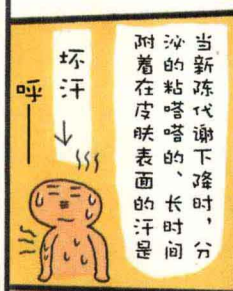 当新陈代谢下降时，分
泌的粘嗒嗒的、长时间
附着在皮肤表面的汗是
坏汗
呼